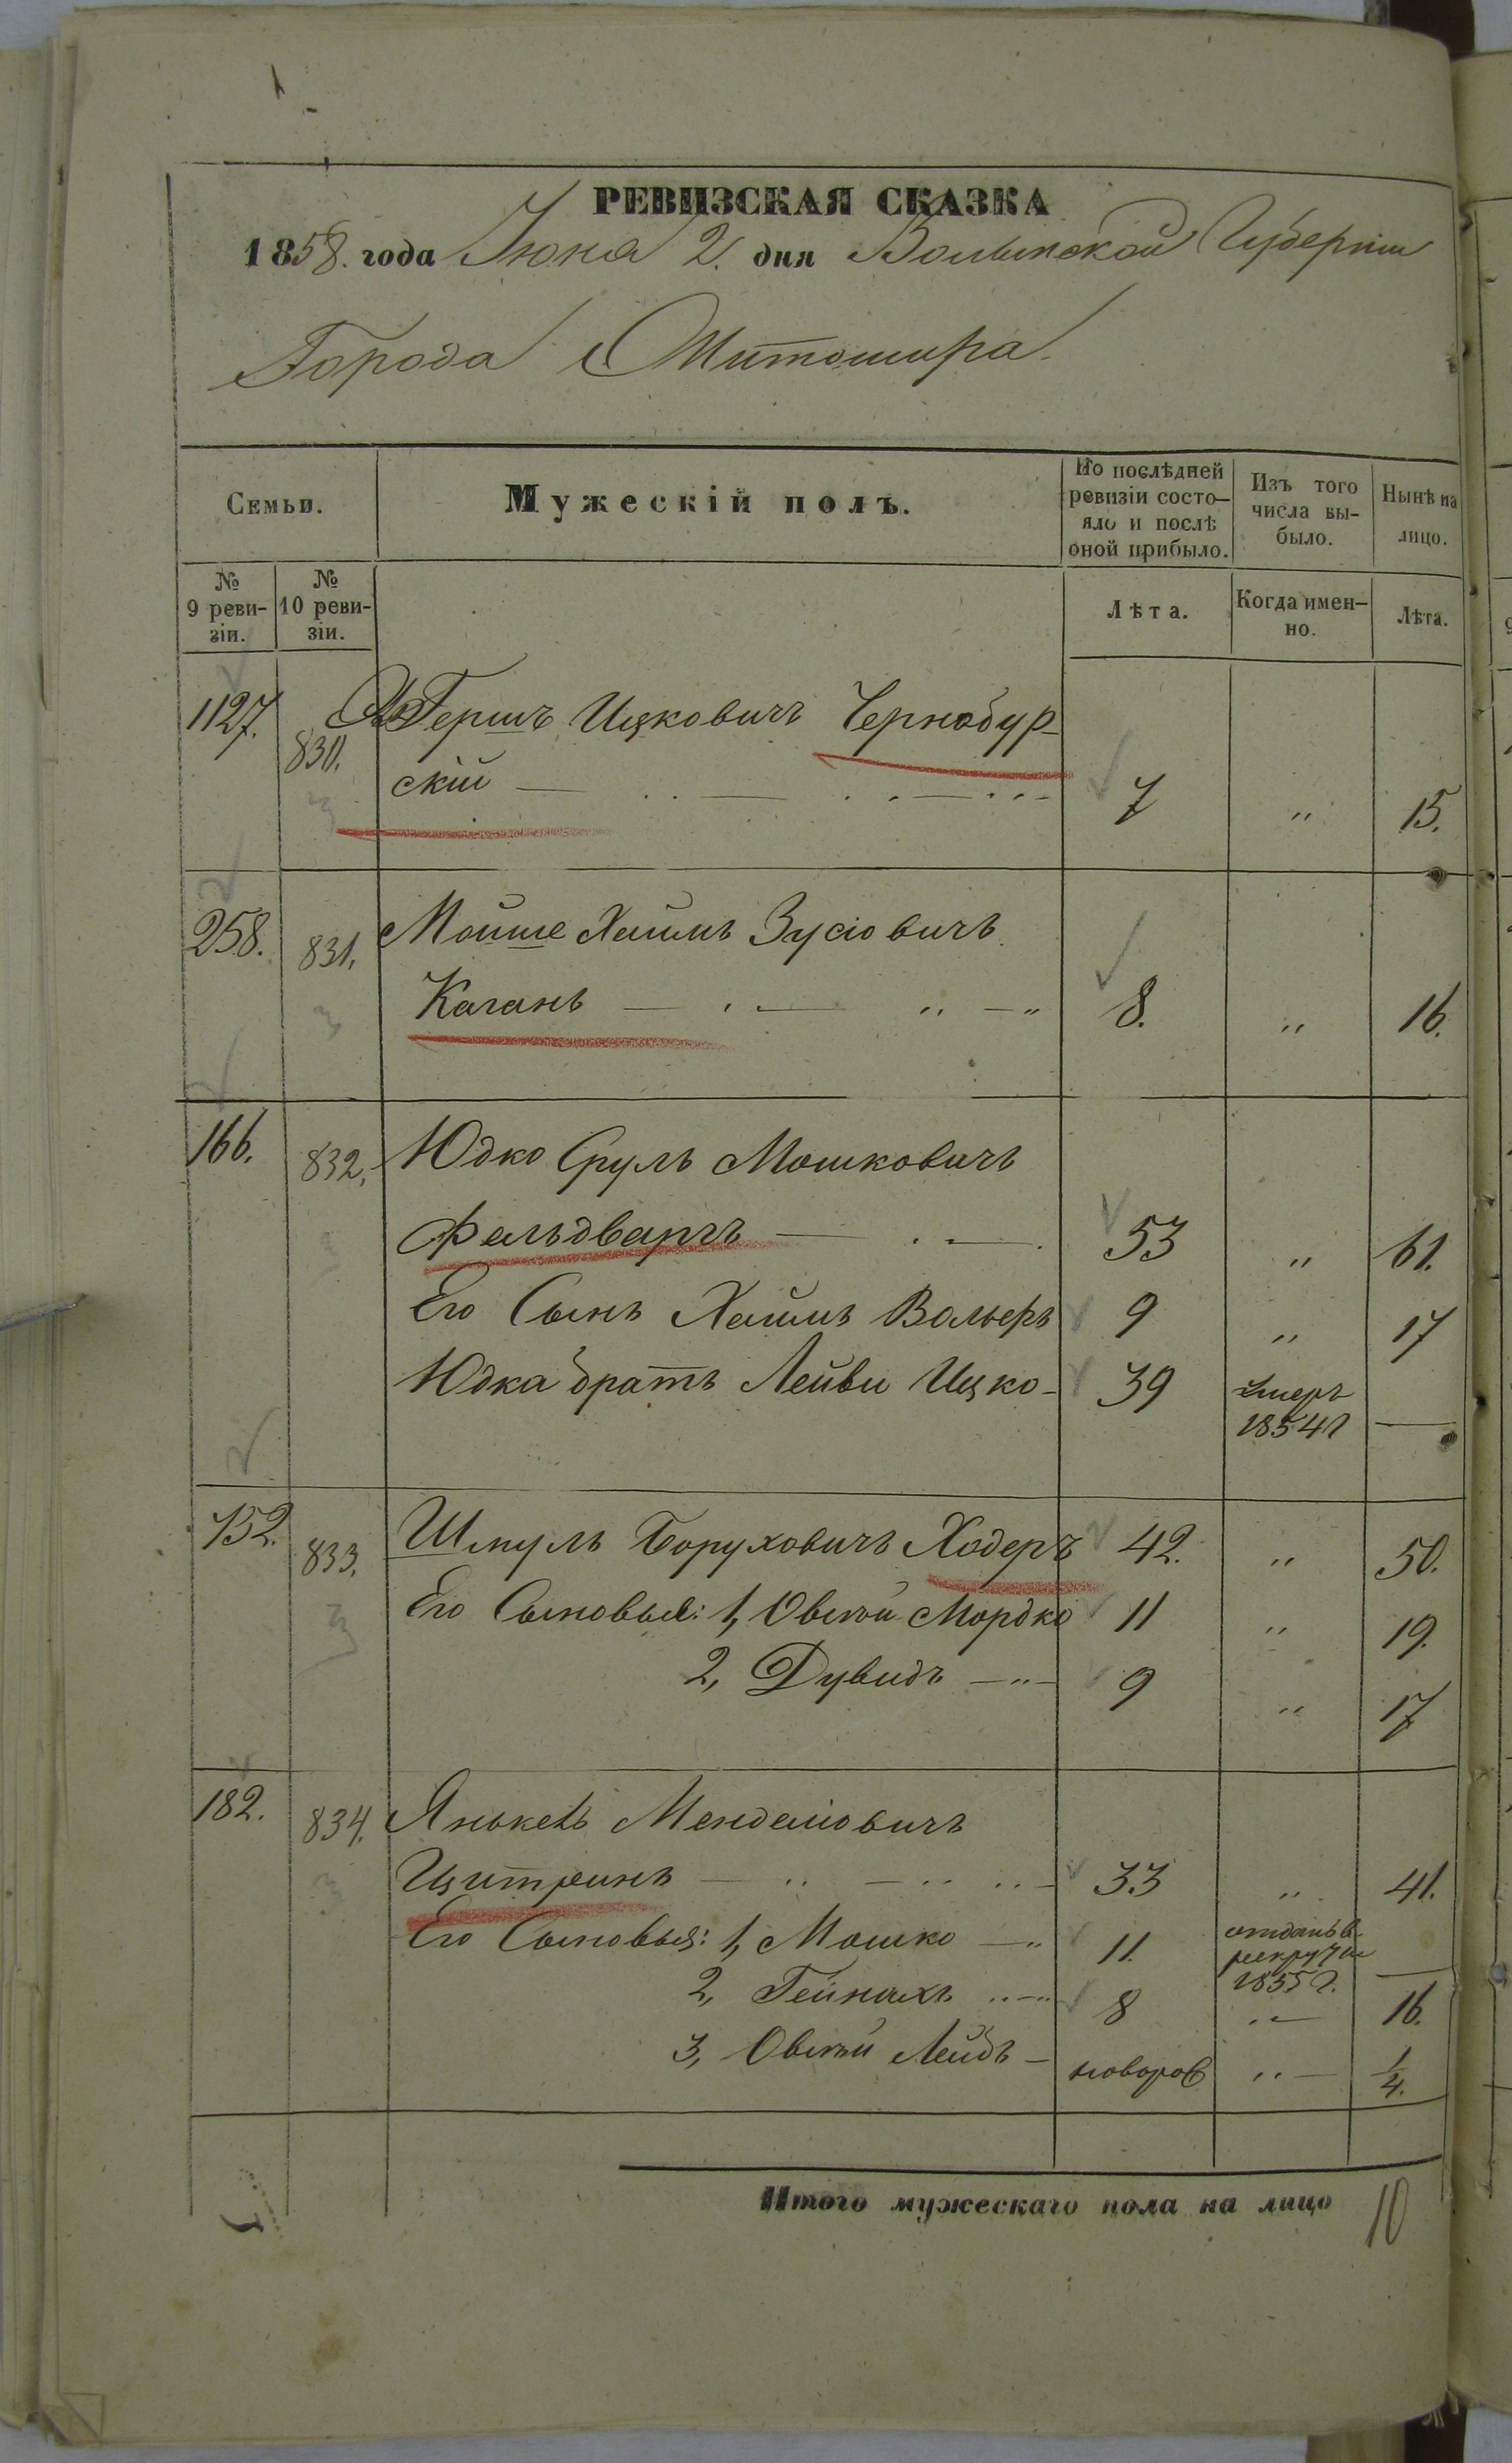 РЕВИЗСКАЯ СКАЗКА
1858. года Июня 2. дня Волынской Губерніи
Города Житомира
Семьи.
Мужескій полъ.
По послѣдней ревизіи состо-
яло и послѣ
оной прибыло.
Изъ того
числа вы-
было.
Нынѣ на
лицо.
№
9 реви-
зіи.
№
10 реви-
зіи.
Лѣта.
Когда имен-
но.
Лѣта.
1127. 830. Гершъ Ицковичъ Чернобур-
скій 7 " 15.
258. 831. Мойше Хаимъ Зусіовичъ
Каганъ 8. " 16.
166. 832. Юдко Сруль Мошковичъ
Фальдваргъ 53 " 61.
Его Сынъ Хаимъ Вольеръ 9 " 17
Юдка братъ Лейви Ицко- 39 умеръ
1854 г —
152. 833. Шмуль Боруховичъ Ходеръ 42. " 50.
Его Сыновья: 1, Овшій Мордко 11 " 19.
2, Дувидъ — " — 9 " 17
182. 834. Янькель Менделіовичъ
Цитринъ 33 " 41.
Его Сыновья: 1, Мошко — " 11. отданъ в
рекруты
1855 г. —
2, Гейнахъ 8 " — 16.
3, Овшій Лейбъ — новорож " — 1/4.
Итого мужескаго пола на лицо 10